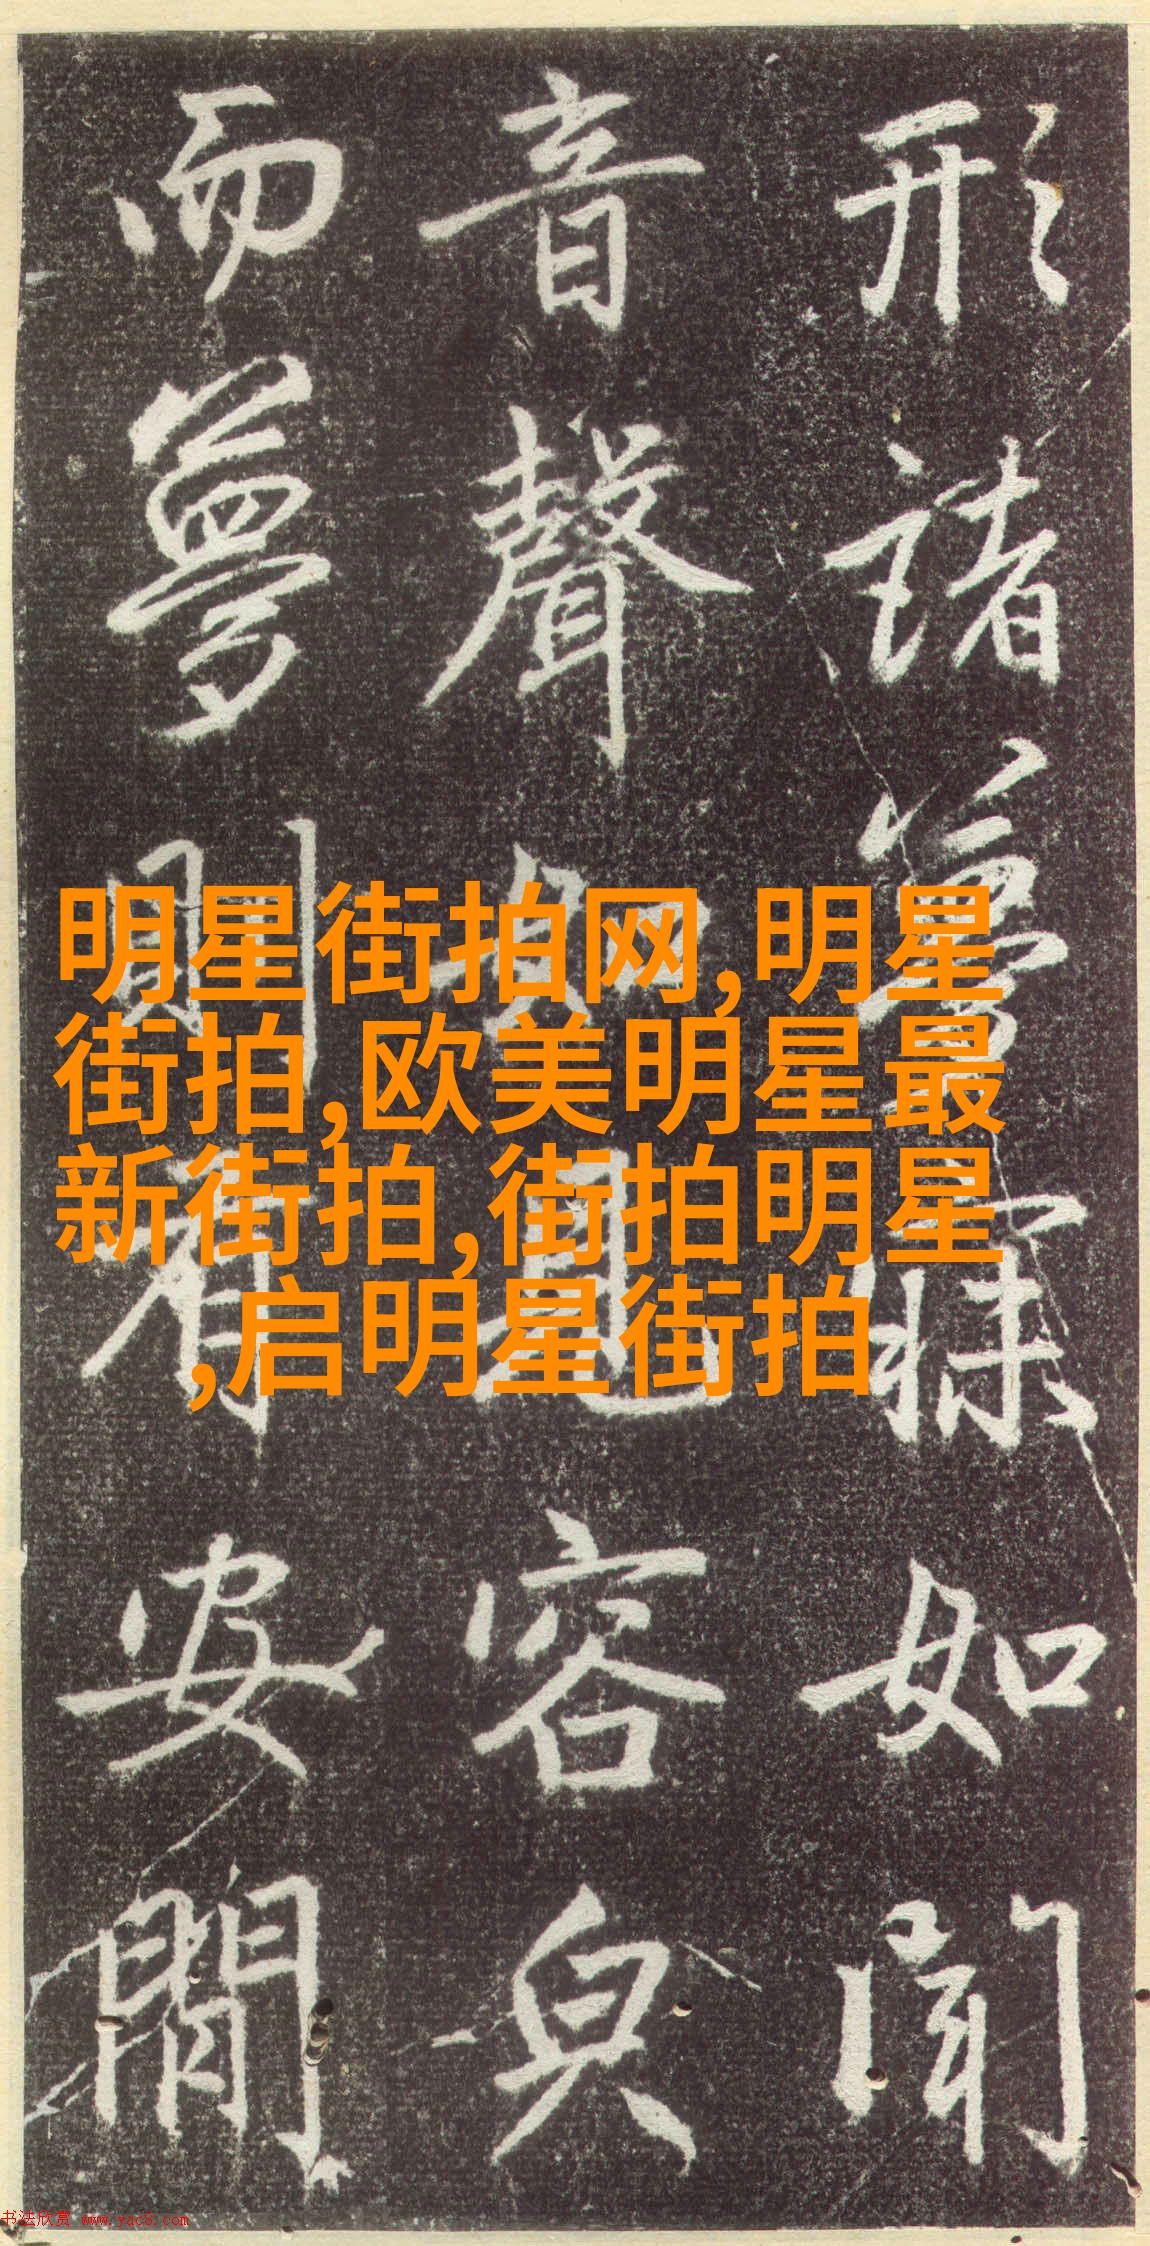 形諸夢寐如聞
音聲如見容皃
而夢則有安間
明星街拍网,明星
街拍,欧美明星最
新街拍,街拍明星
,启明星街拍
书法欣赏 www.yac8.com